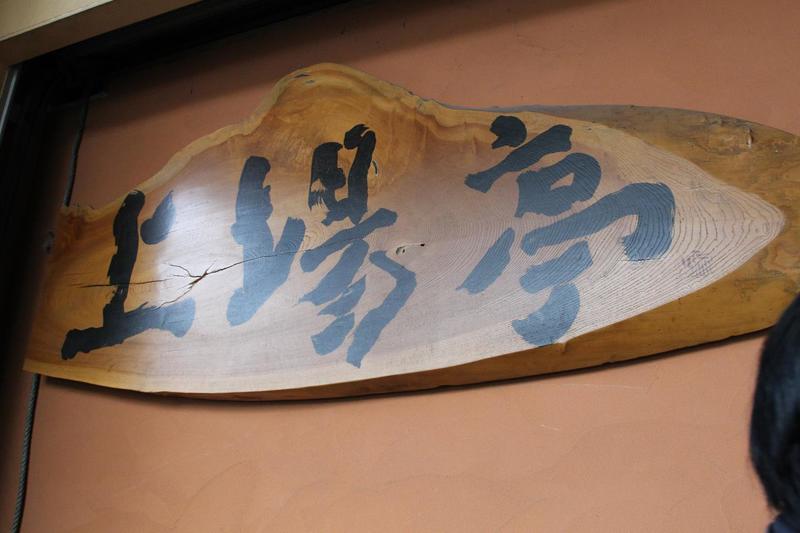 上場亭